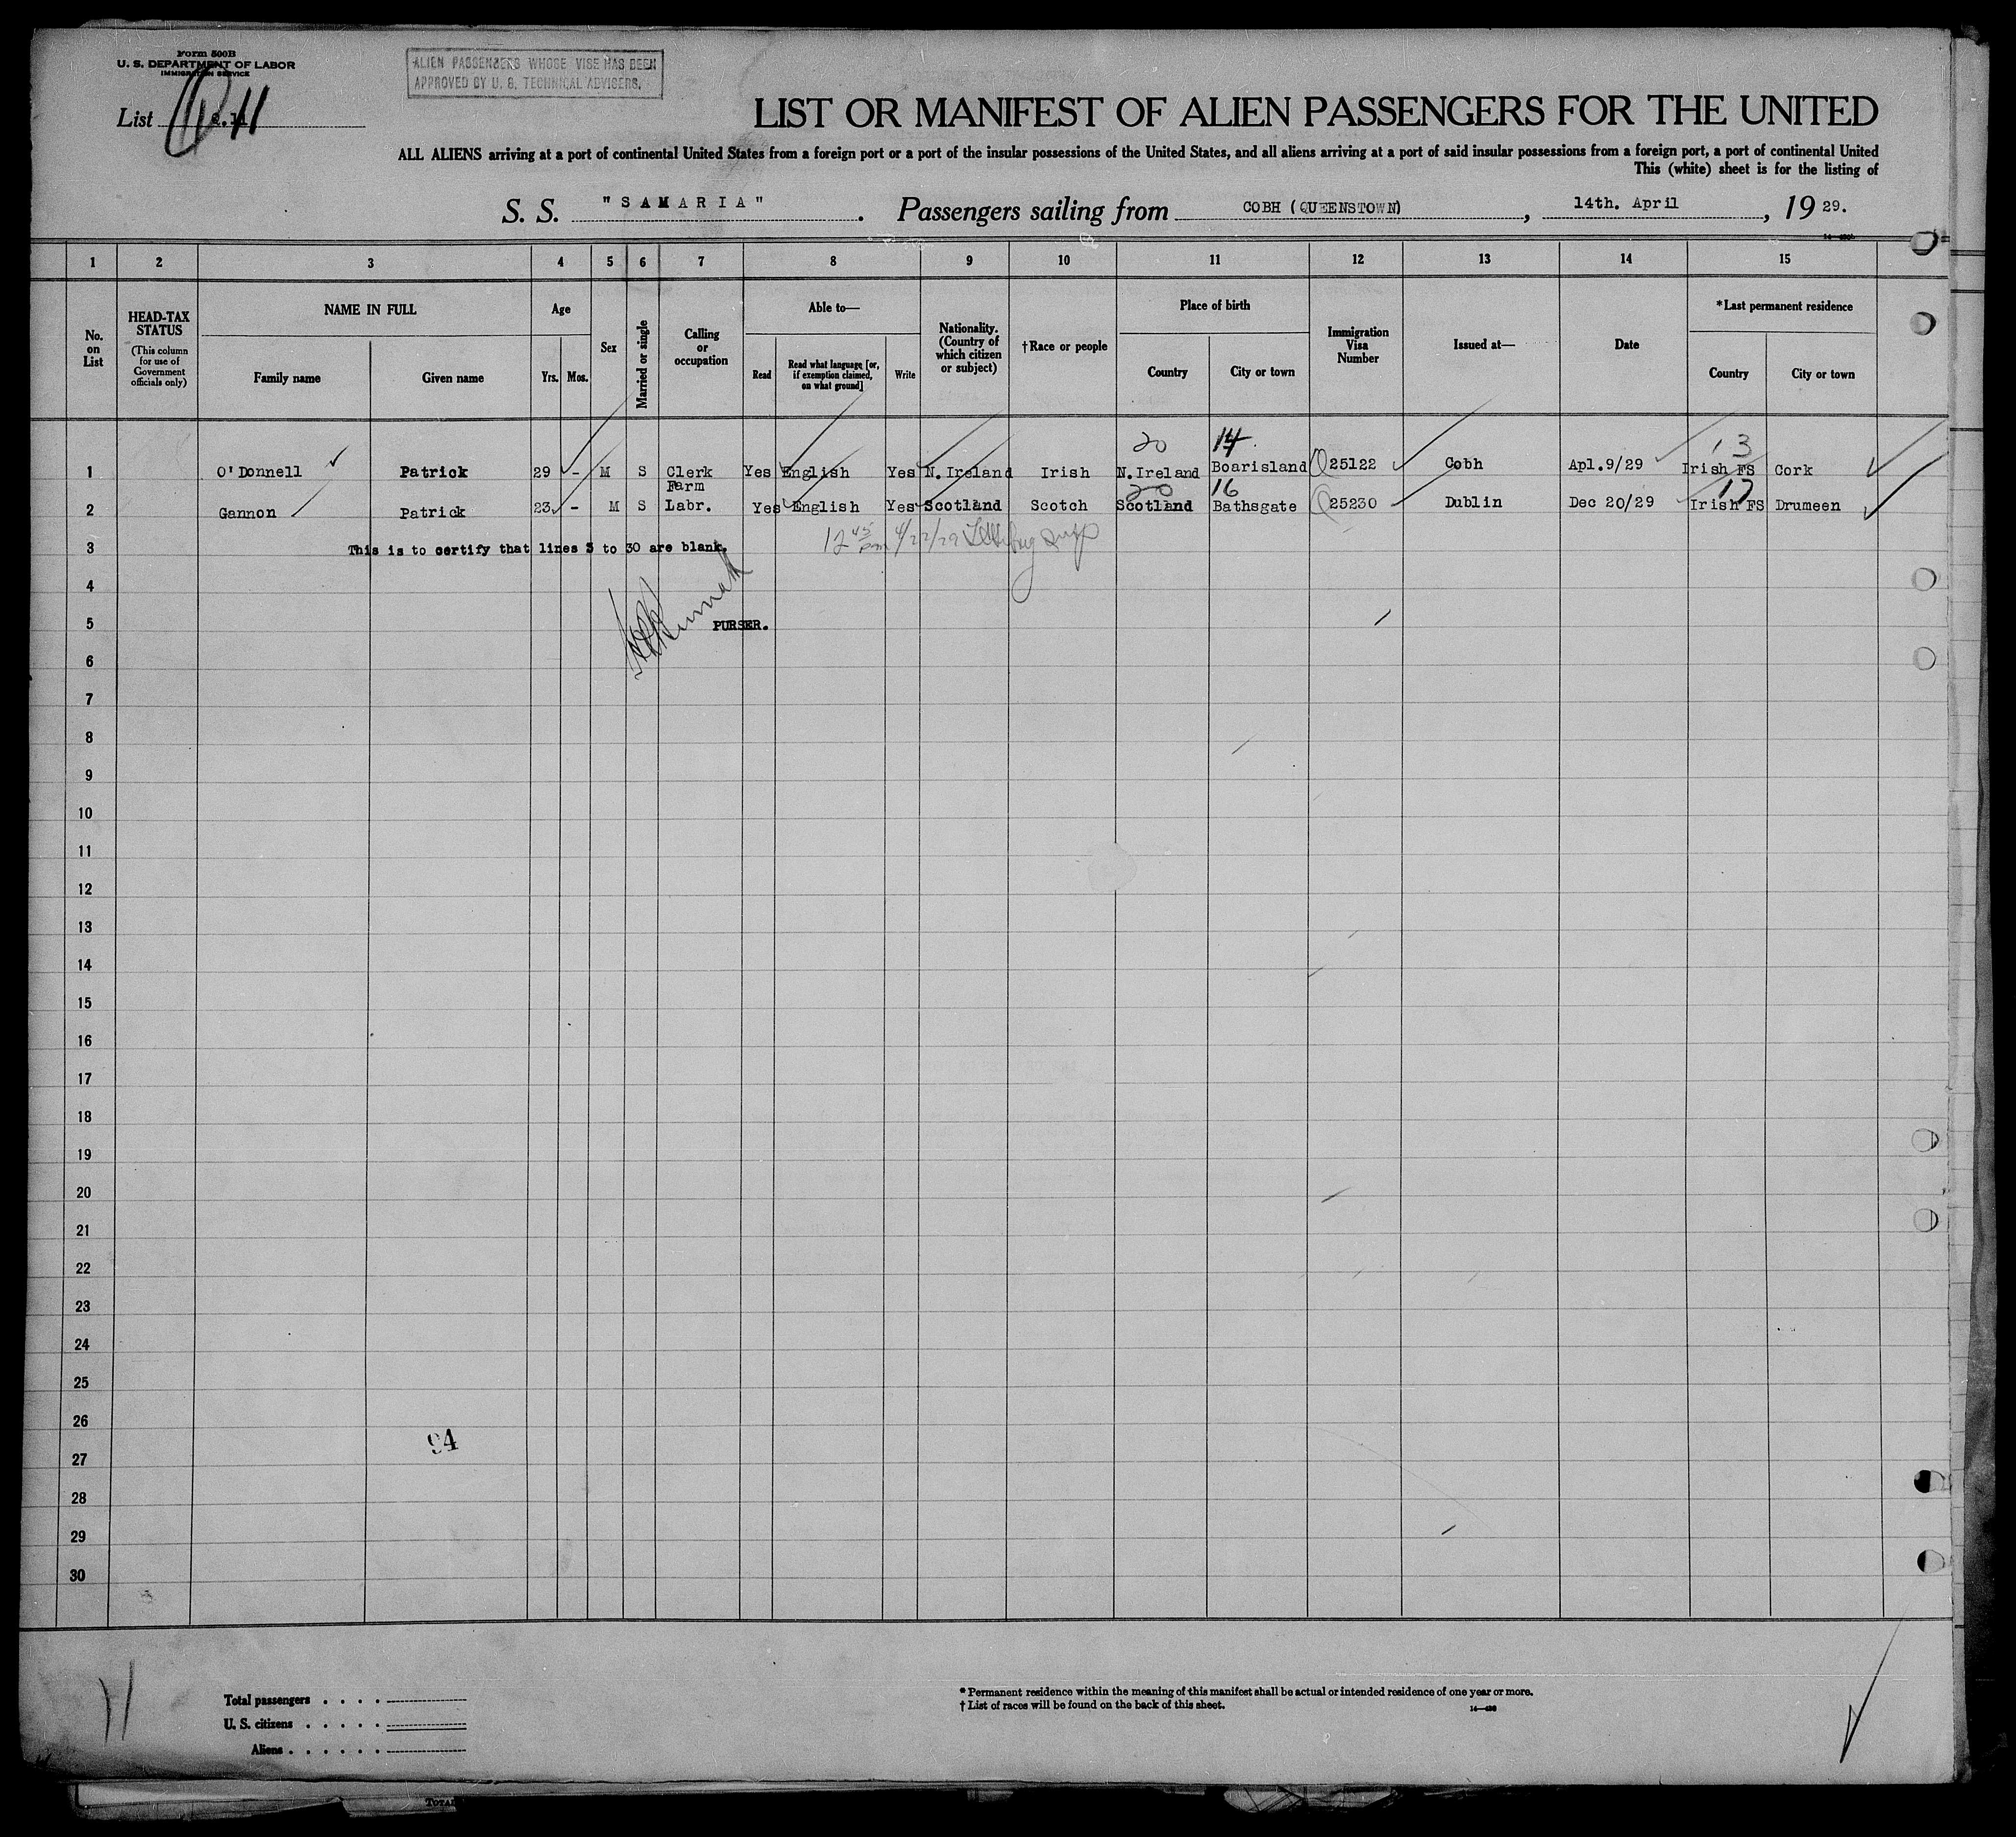 Form 500B
U. S. DEPARTMENT OF LABOR
IMMIGRATION SERVICE
ALIEN PASSENGERS WHOSE VISE HAS BEEN
APPROVED BY U. S. TECHNICAL ADVISERS.
List 11
LIST OR MANIFEST OF ALIEN PASSENGERS FOR THE UNITED
ALL ALIENS arriving at a port of continental United States from a foreign port or a port of the insular possessions of the United States, and all aliens arriving at a port of said insular possessions from a foreign port, a port of continental United
This (white) sheet is for the listing of
S. S. "SAMARIA". Passengers sailing from COBH (QUEENSTOWN), 14th. April, 1929.
1 2 3 4 5 6 7 8 9 10 11 12 13 14 15
No. on List
HEAD-TAX STATUS
(This column for use of Government officials only)
NAME IN FULL
Family name
Given name
Age
Yrs. Mos.
Sex
Married or single
Calling or occupation
Able to—
Read
Read what language [or, if exemption claimed, on what ground]
Write
Nationality. (Country of which citizen or subject)
†Race or people
Place of birth
Country
City or town
Immigration Visa Number
Issued at—
Date
*Last permanent residence
Country
City or town
20 14 13
1 O'Donnell Patrick 29 - M S Clerk Yes English Yes N. Ireland Irish N.Ireland Boarisland 25122 Cobh Apl.9/29 Irish FS Cork
20 16 17
2 Gannon Patrick 23 - M S Farm Labr. Yes English Yes Scotland Scotch Scotland Bathsgate 25230 Dublin Dec 20/29 Irish FS Drumeen
3 This is to certify that lines 3 to 30 are blank. 12 45 pm 4/22/29
4
5 PURSER.
6
7
8
9
10
11
12
13
14
15
16
17
18
19
20
21
22
23
24
25
26
94
27
28
29
30
11
Total passengers . . . .
U. S. citizens . . . . .
Aliens . . . . . .
* Permanent residence within the meaning of this manifest shall be actual or intended residence of one year or more.
† List of races will be found on the back of this sheet.